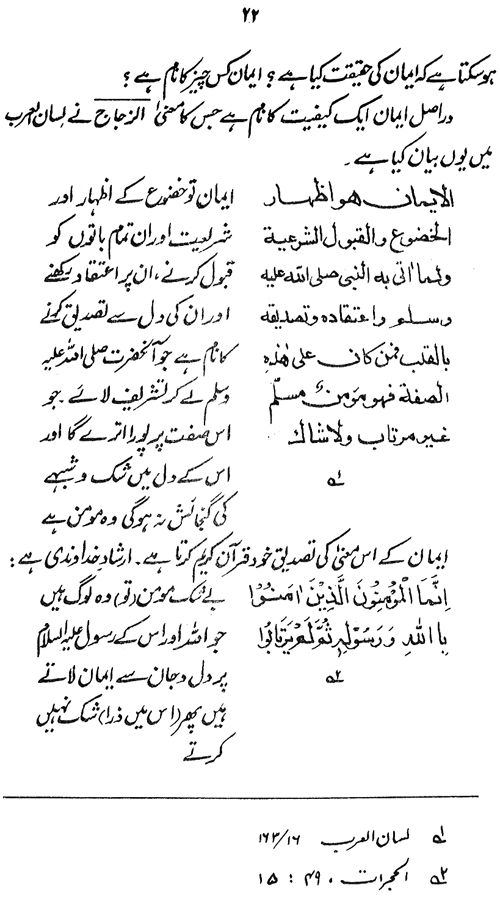 ۲۲
ہو سکتا ہے کہ ایمان کی حقیقت کیا ہے ؟ ایمان کس چیز کا نام ہے ؟
دراصل ایمان ایک کیفیت کا نام ہے جس کا معنیٰ الزجاج نے لسان العرب
میں یوں بیان کیا ہے ۔
الایمان ھو اظھار
الخضوع والقبول الشرعیة
ولما اتی به النبی صلی الله علیه
وسلم واعتقاده وتصدیقه
بالقلب فمن کان علی ھٰذہِ
الصفة فهو مؤمن مسلّم
غیر مرتاب ولا شاك
؎۱
ایمان تو خضوع کے اظہار اور
شریعت اور ان تمام باتوں کو
قبول کرنے ، ان پر اعتقاد رکھنے
اور ان کی دل سے تصدیق کرنے
کا نام ہے جو آنحضرت صلی اللہ علیہ
وسلم لے کر تشریف لائے ۔ جو
اس صفت پر پورا اترے گا اور
اس کے دل میں شک و شبہے
کی گنجائش نہ ہوگی وہ مومن ہے
ایمان کے اس معنیٰ کی تصدیق خود قرآن کریم کرتا ہے ۔ ارشاد خداوندی ہے :
اِنَّمَا الْمُؤْمِنُونَ الَّذِیْنَ اٰمَنُوْا
بِاللهِ وَرَسُوْلِهٖ ثُمَّ لَمْ یَرْتَابُوْا
؎۲
بے شک مومن (تو) وہ لوگ ہیں
جو اللہ اور اس کے رسول علیہ السلام
پر دل و جان سے ایمان لاتے
ہیں پھر (اس میں ذرا) شک نہیں
کرتے
؎۱ لسان العرب ۱۶/۱۶۳
؎۲ الحجرات ، ۴۹ : ۱۵